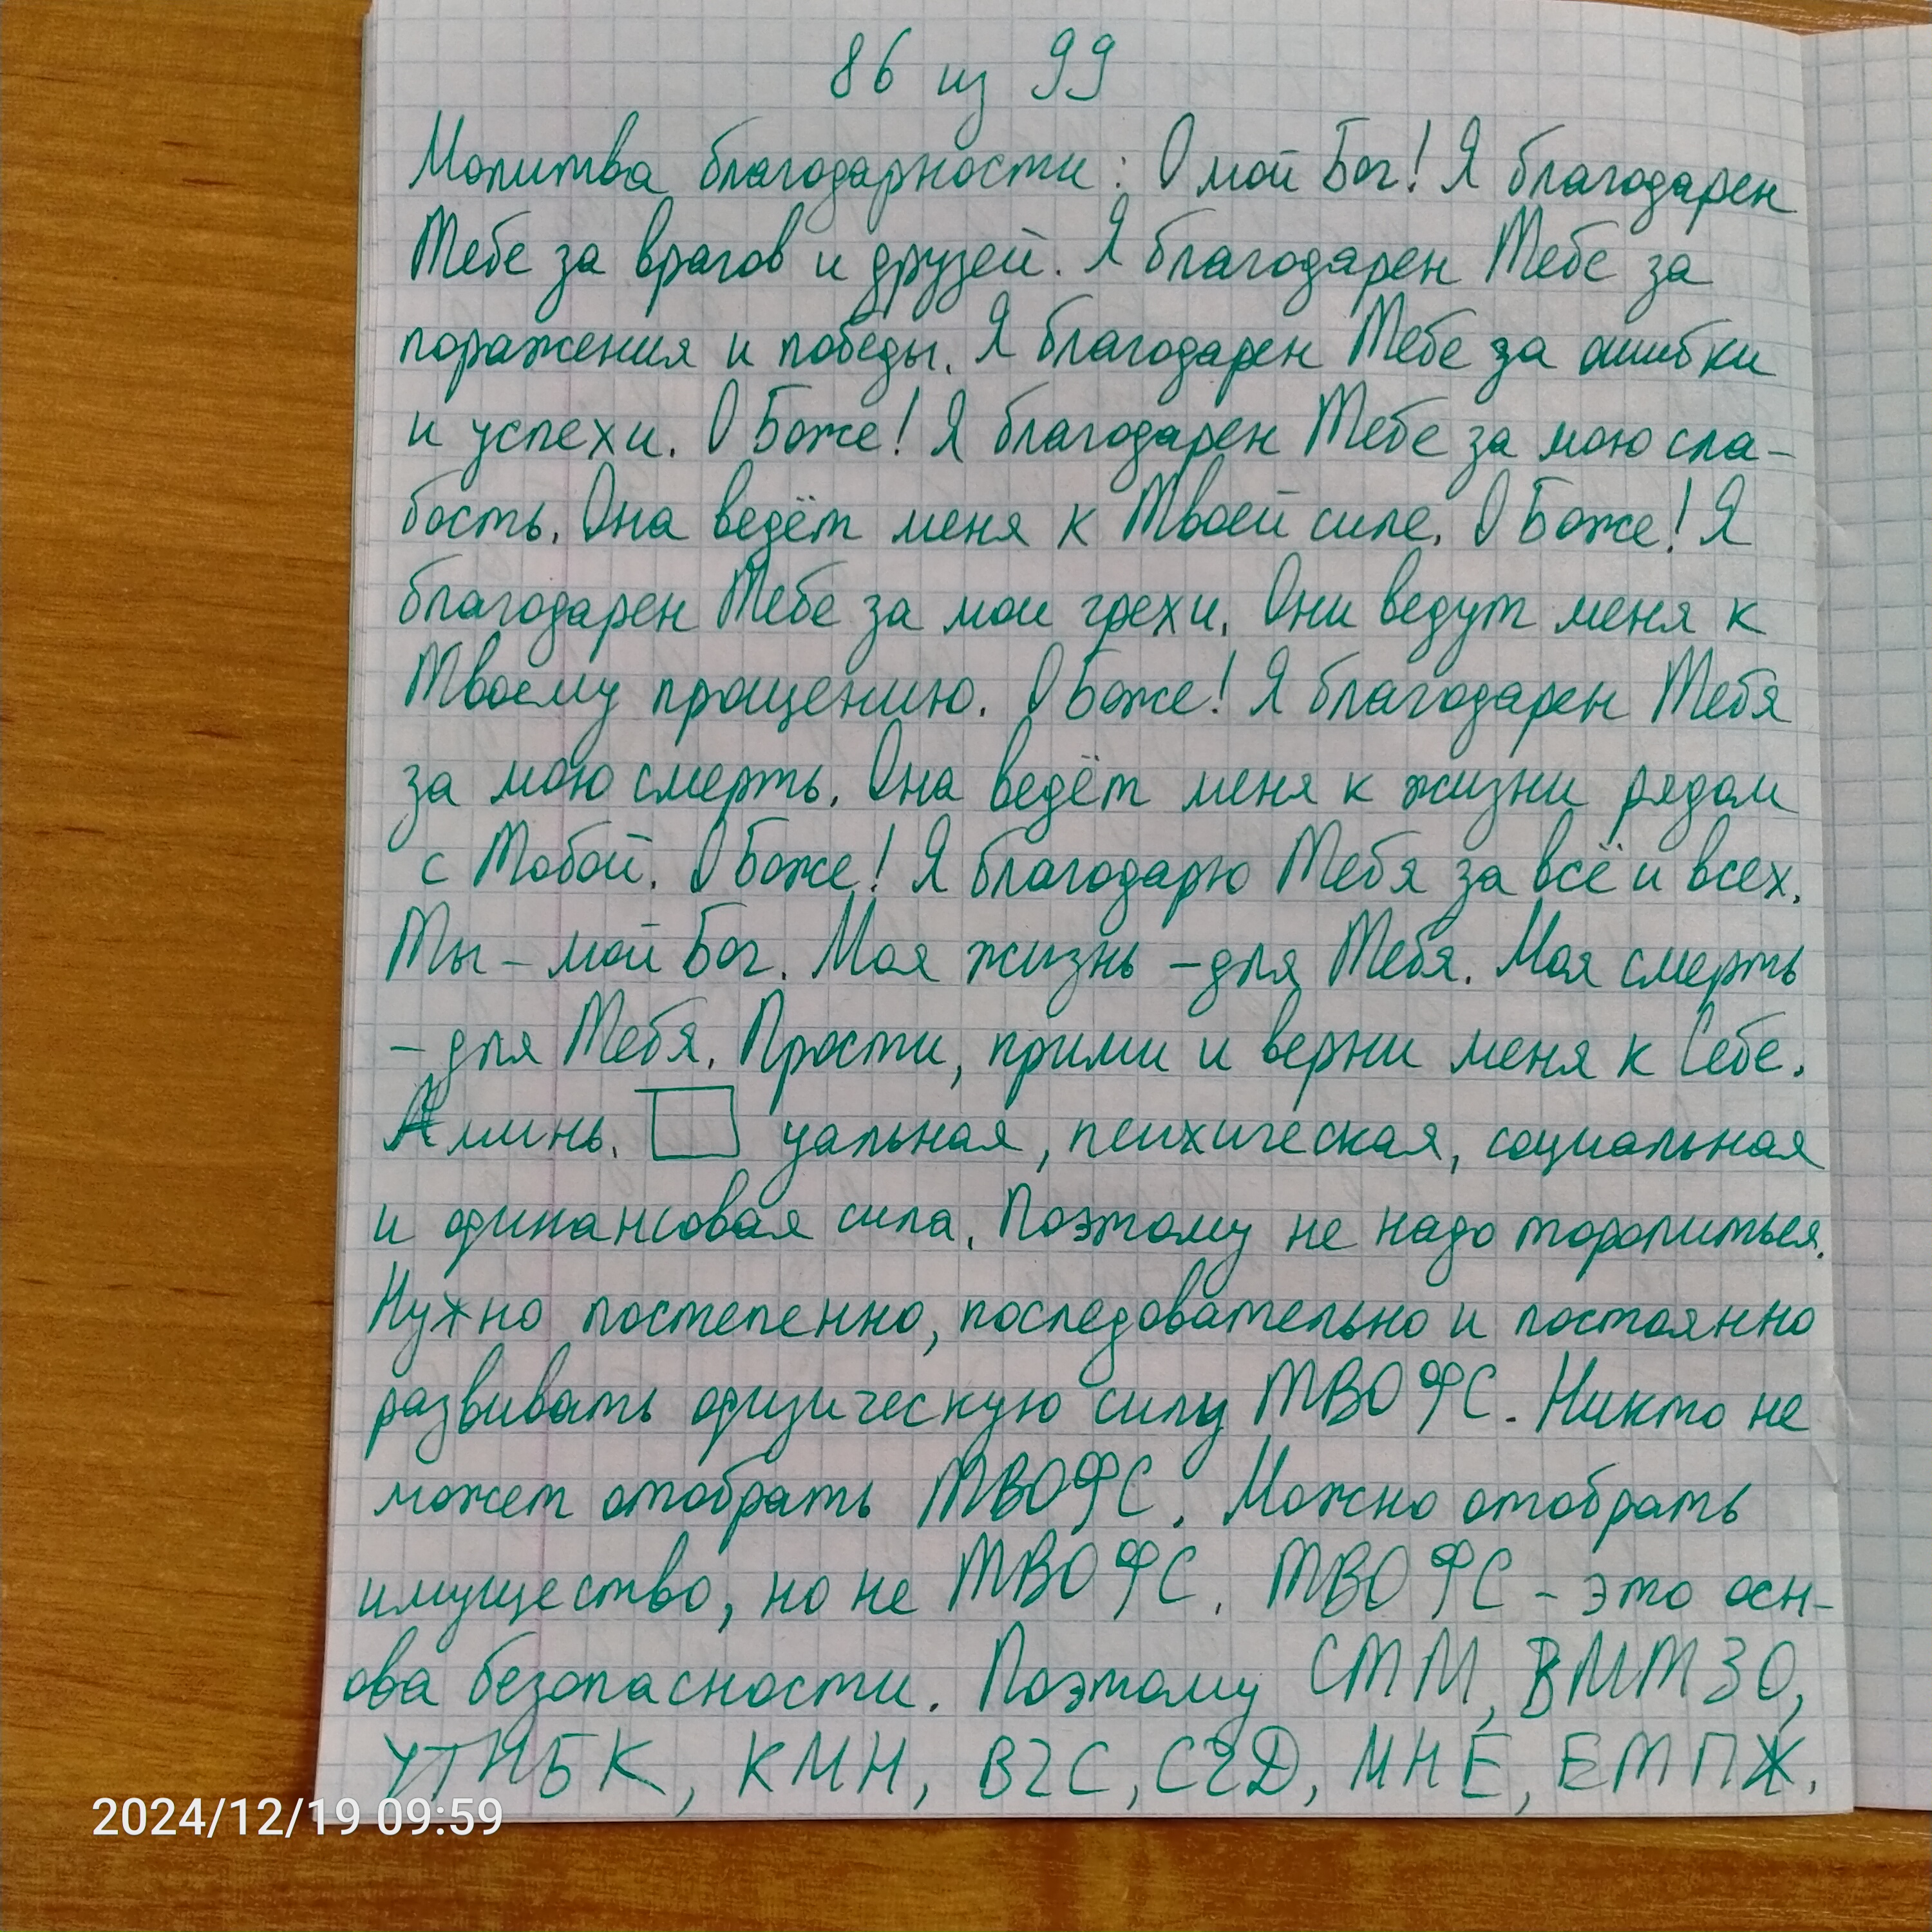 86 из 99
Молитва благодарности: О мой Бог! Я благодарен
Тебе за врагов и друзей. Я благодарен Тебе за
поражения и победы. Я благодарен Тебе за ошибки
и успехи. О Боже! Я благодарен Тебе за мою сла-
бость. Она ведёт меня к Твоей силе. О Боже! Я
благодарен Тебе за мои грехи. Они ведут меня к
Твоему прощению. О Боже! Я благодарен Тебя
за мою смерть. Она ведёт меня к жизни рядом
с Тобой. О Боже! Я благодарю Тебя за всё и всех.
Ты - мой Бог. Моя жизнь - для Тебя. Моя смерть
- для Тебя. Прости, прими и верни меня к Себе.
Аминь. уальная, психическая, социальная
и финансовая сила. Поэтому не надо торопиться.
Нужно постепенно, последовательно и постоянно
развивать физическую силу ТВОФС. Никто не
может отобрать ТВОФС. Можно отобрать
имущество, но не ТВОФС. ТВОФС - это осн-
ова безопасности. Поэтому СТМ, ВМТЗО,
УТНБК, КМН, ВЧС, СЧД, МНЕ, ЕМПЖ.
2024/12/19 09:59